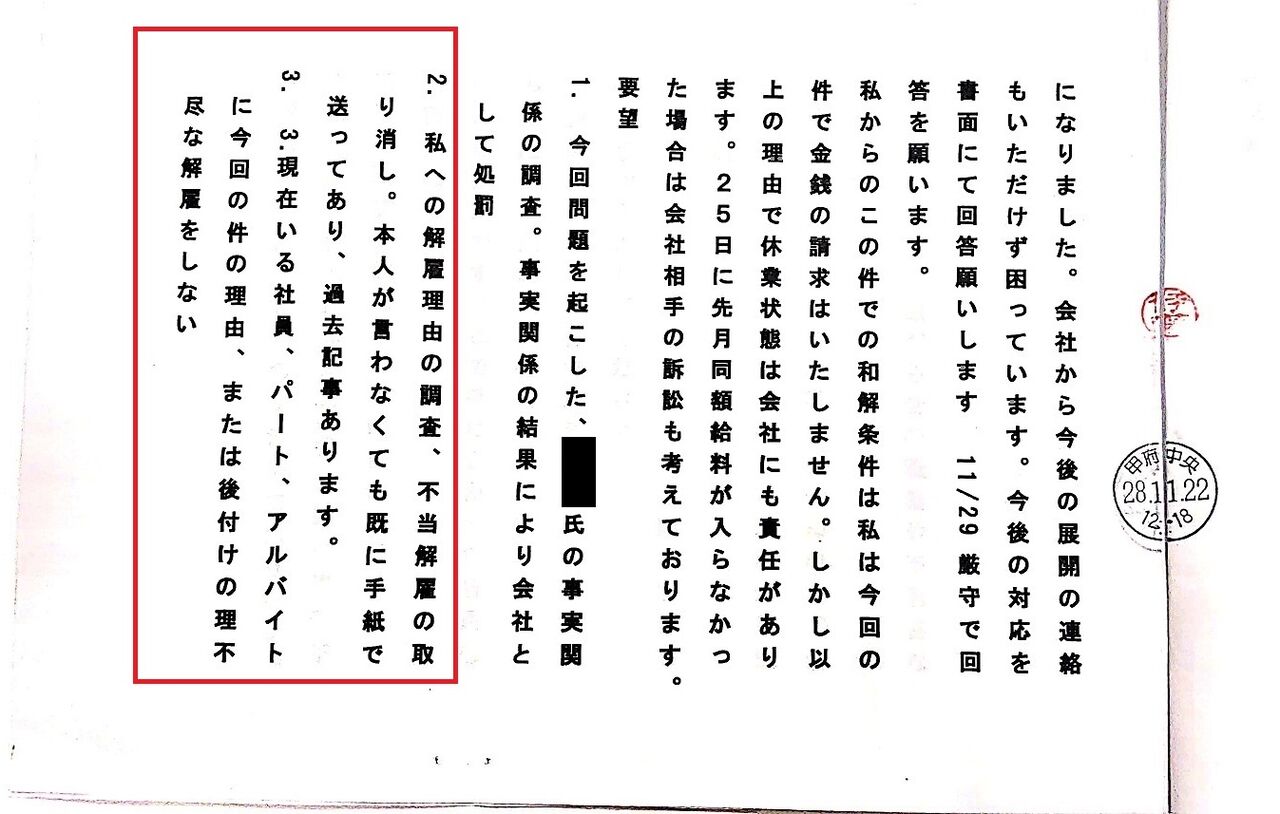 になりました。会社から今後の展開の連絡
もいただけず困っています。今後の対応を
書面にて回答願いします　11/29 厳守で回
答を願います。
私からのこの件での和解条件は私は今回の
件で金銭の請求はいたしません。しかし以
上の理由で休業状態は会社にも責任があり
ます。２５日に先月同額給料が入らなかっ
た場合は会社相手の訴訟も考えております。
要望
1.　今回問題を起こした、氏の事実関
係の調査。事実関係の結果により会社と
して処罰
2.　私への解雇理由の調査、不当解雇の取
り消し。本人が言わなくても既に手紙で
送ってあり、過去記事あります。
3.　3.現在いる社員、パート、アルバイト
に今回の件の理由、または後付けの理不
尽な解雇をしない
甲府中央
28.11.22
12-18